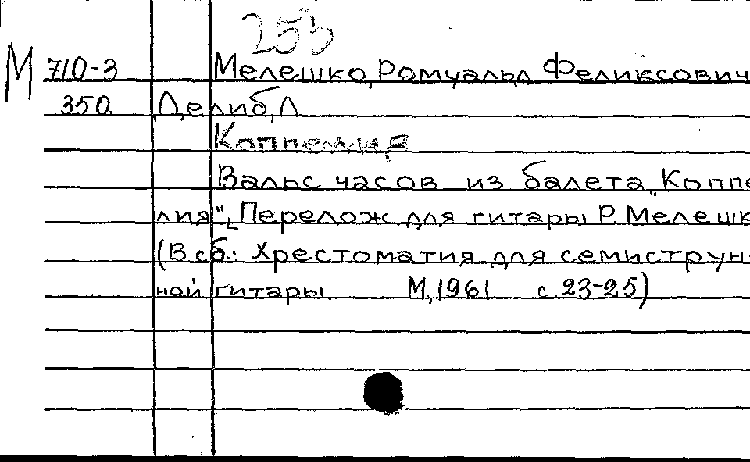 253
М 710-3 Мелешко, Ромуальд Феликсович
350 Делиб, Л
Коппелия
Вальс часов из балета „Коппе
лия". Перелож для гитары Р. Мелешк
(В сб.: Хрестоматия для семиструн-
ной гитары М, 1961 с. 23-25)